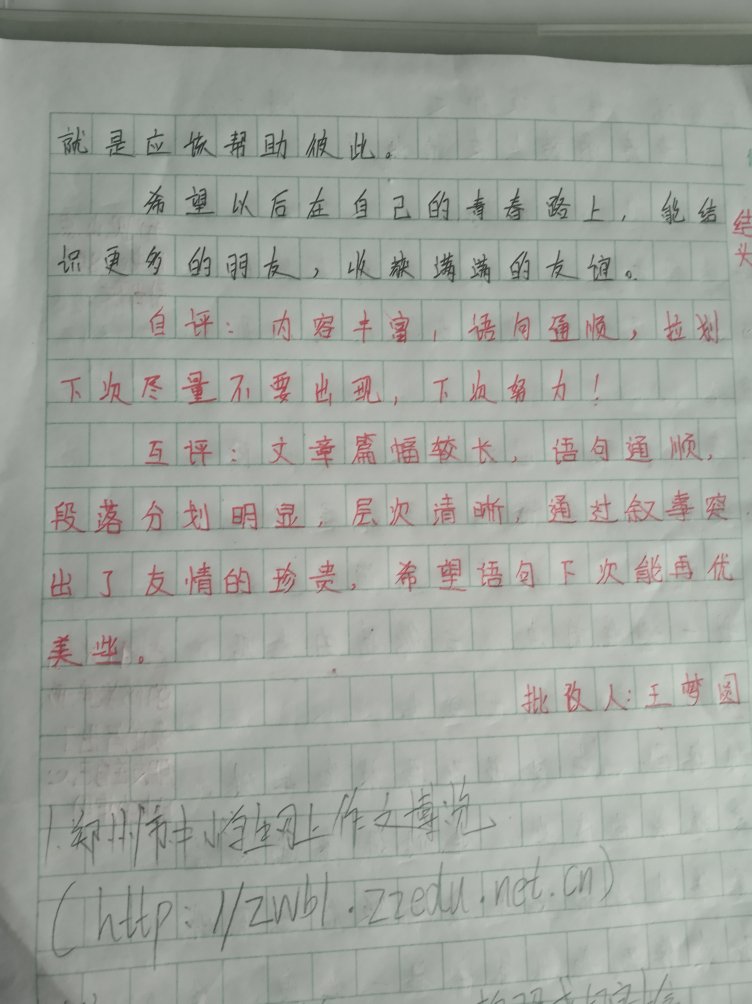 就是应该帮助彼此。
希望以后在自己的青春路上，能结
识更多的朋友，收获满满的友谊。
结
头
自评：内容丰富，语句通顺，拉划
下次尽量不要出现，下次努力！
互评：文章篇幅较长，语句通顺，
段落分划明显，层次清晰，通过叙事突
出了友情的珍贵，希望语句下次能再优
美些。
批改人：王梦圆
1.郑州市中小学生网上作文博览
(http://zwbl.zzedu.net.cn)